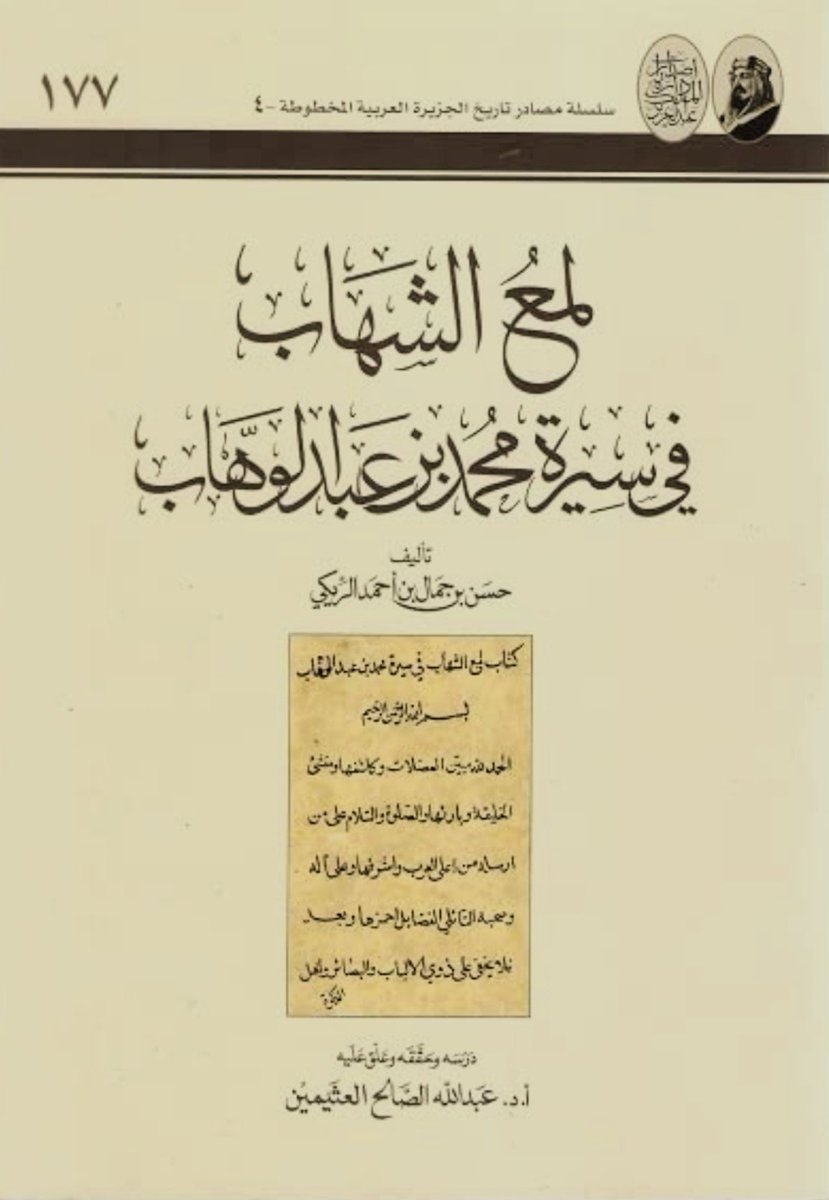 ١٧٧
سلسلة مصادر تاريخ الجزيرة العربية المخطوطة -٤
لمعُ الشهاب
في سيرة محمُد بن عبد الوهَّاب
تأليف
حسَن بن جمال بن أحمَد الريكي
كتاب لمع الشهاب في سيرة محمد بن عبد الوهاب
بسم الله الرحمن الرحيم
الحمد لله مبين المعضلات وكاشفها ومنشئ
الخليقة وبارئها والصلوة والسلام على من
ارسله من اعلى العرب واشرفها وعلى آله
وصحبه النائلي الفضايل احمزها وبعد
فلا يخفى على ذوي الالباب والبصائر واهل
دَرَسَه وحَقَّقَه وعَلّق عَلَيه
أ.د. عَبدالله الصَّالح العثَيمين